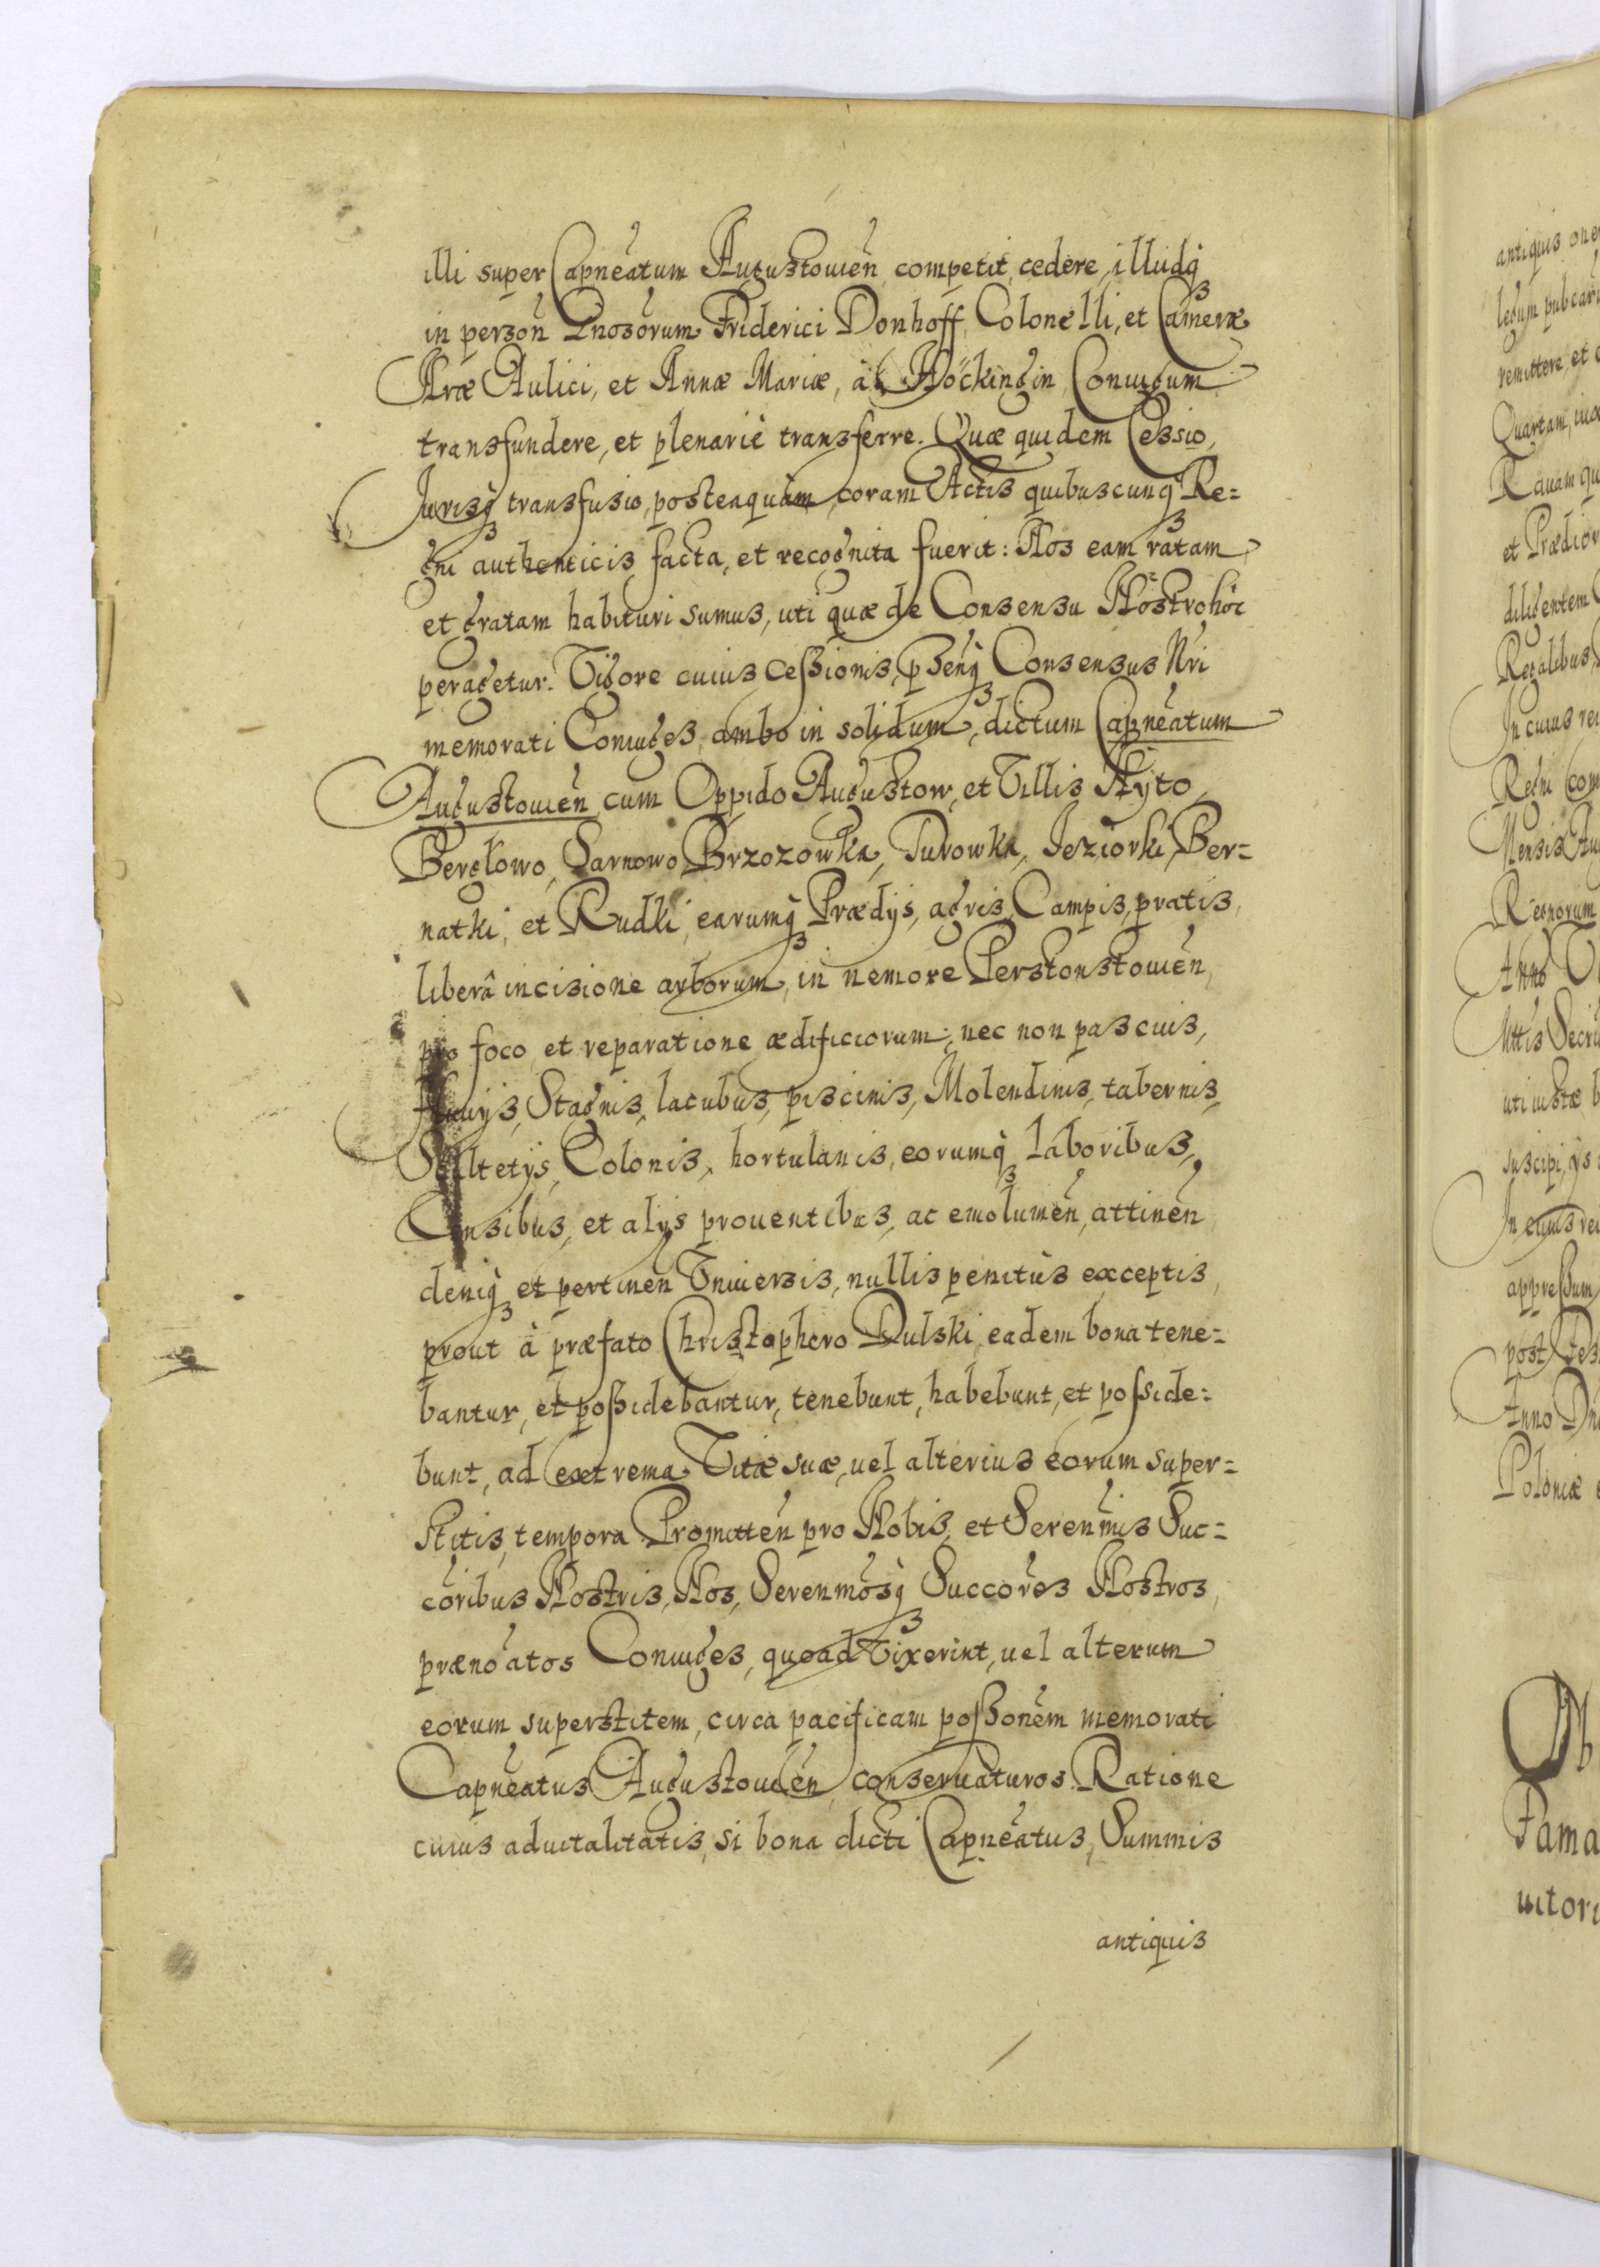 illi super Capneatum Augustouien competit, cedere, illudq3
in person Gnosorum Friderici Donhoff Colonelli, et Cameræ
Nræ Aulici, et Annæ Mariæ, à Höcking in Coniugum
transfundere, et plenariè transferre. Quæ quidem Cessio,
Jurisq3 transfusio, posteaquàm coram Actis quibuscunq3 Re=
gni authenticis facta, et recognita fuerit: Nos eam ratam
et gratam habituri sumus, uti quæ de Consensu Nostro hoc
peragetur. Vigore cuius Cessionis, pßenq3 Consensus Nri
memorati Coniuges ambo in solidum, dictum Capneatum
Augustouien cum Oppido Augustow, et Villis Nyto,
Bergłowo, Sarnowo, Brzozowka, Turowka, Jeziorki, Ber=
natki, et Rudki, earumq3 Prædijs, agris, Campis, pratis,
liberâ incisione arborum, in nemore Perstonstouien,
pro foco et reparatione ædificiorum; nec non pascuis,
fluuijs, Stagnis, lacubus, piscinis, Molendinis, tabernis,
Scultetijs, Colonis, hortulanis, eorumq3 laboribus,
Censibus, et alijs prouentibus, ac emolumen, attinen
deniq3 et pertinen Vniuersis, nullis penitùs exceptis,
prout à præfato Christophero Dulski, eadem bona tene=
bantur, et possidebantur, tenebunt, habebunt, et posside=
bunt, ad extrema Vitæ suæ, uel alterius eorum super=
stitis, tempora Promitten pro Nobis, et Serenmis Suc=
coribus Nostris, Nos, Serenmosq3 Succores Nostros,
prænoatos Coniuges, quoad Vixerint, uel alterum
eorum superstitem, circa pacificam poßonem memorati
Capneatus Augustouien conseruaturos. Ratione
cuius aduitalitatis, si bona dicti Capneatus, Summis
antiquis